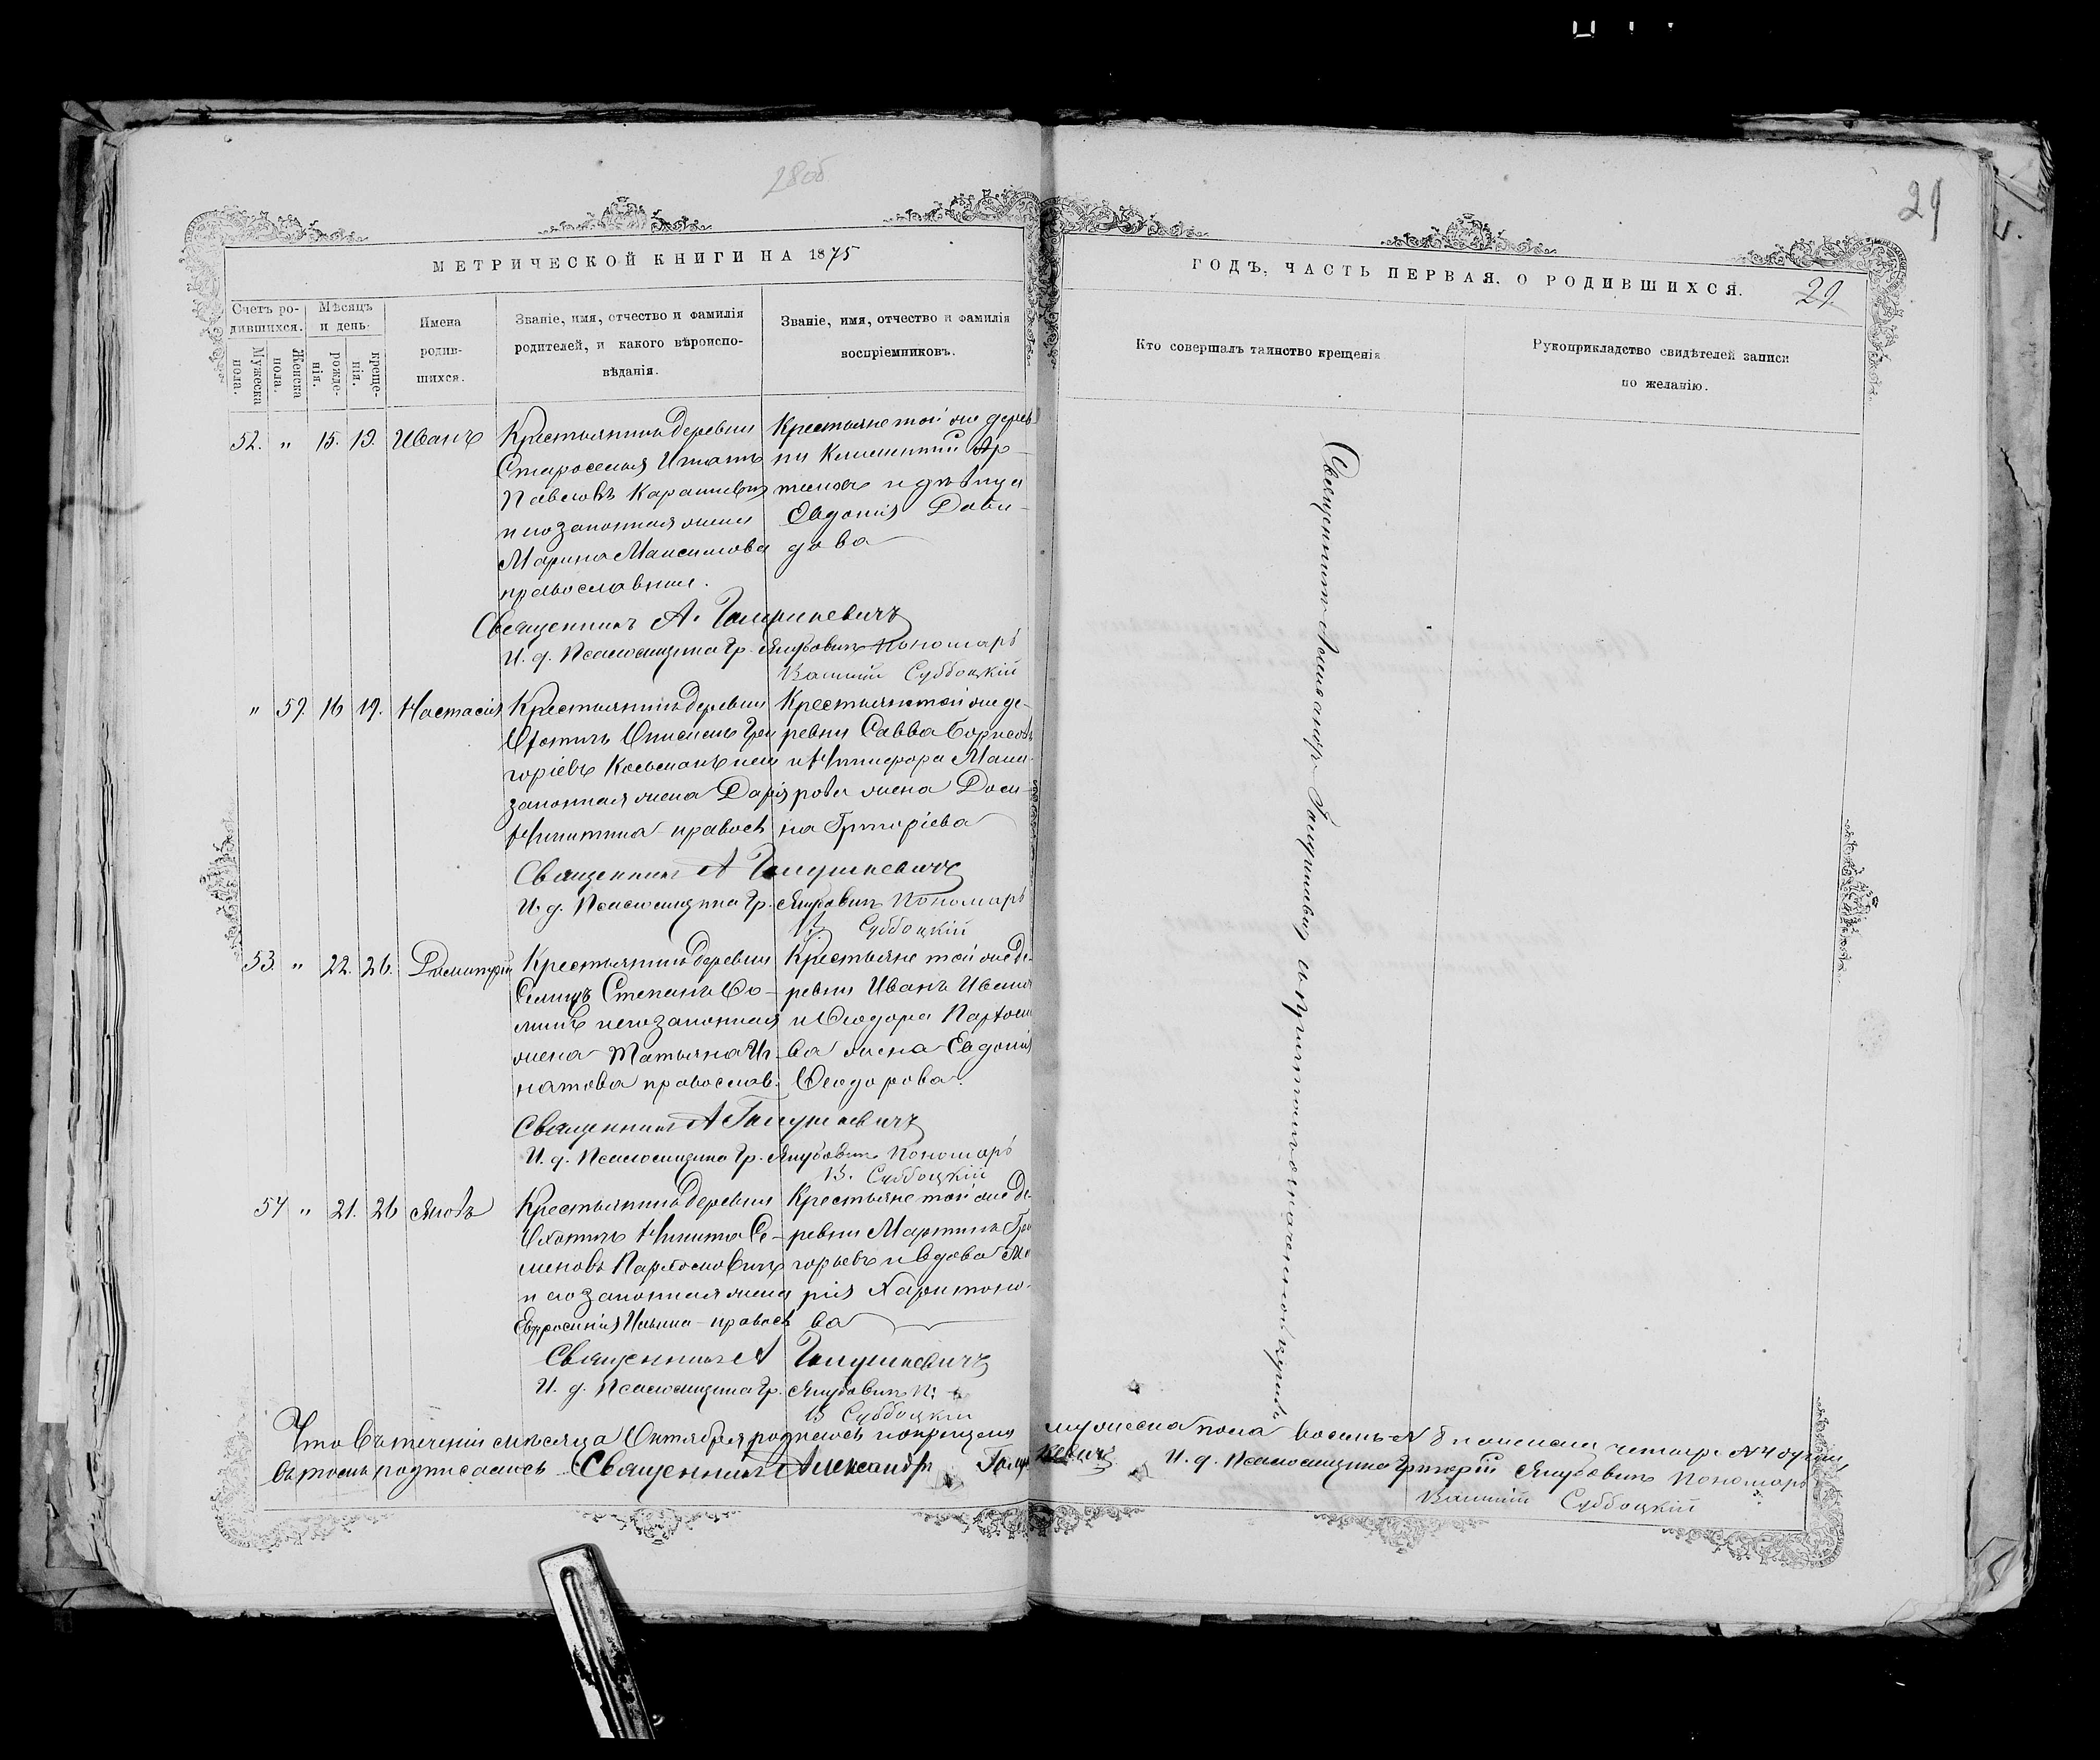 28об
29
МЕТРИЧЕСКОЙ КНИГИ НА 1875
ГОДЪ, ЧАСТЬ ПЕРВАЯ, О РОДИВШИХСЯ.
29.
Счетъ ро-
дившихся.
Мѣсяцъ
и день.
Мужеска
пола.
Женска
пола.
рожде-
нія.
креще-
нія.
Имена
родив-
шихся.
Званіе, имя, отчество и фамилія
родителей, и какого вѣроиспо-
вѣданія.
Званіе, имя, отчество и фамилія
воспріемниковъ.
Кто совершалъ таинство крещенія.
Рукоприкладство свидѣтелей записи
по желанію.
52. " 15. 19. Иванъ
Крестьянинъ деревни
Староселья Игнатъ
Павловъ
и его законная жена
Марина Максимова
православные.
Крестьяне той же дерев
ни Климентій Ар-
и дѣвица
Евдокія Дави-
дова
Священникъ А. Галушкевичъ
И. д. Псаломщика Гр. Якубовичъ Пономарь
Василій Субботскій
" 59. 16 19. Настасія
Крестьянинъ деревни
Гри
горіевъ
законная жена Дарія
Никитина правосл
Крестьяне той же де-
ревни Савва Борисовъ
и Никифора Мака-
рова жена Доми-
на Григоріева
Священникъ А Галушкевичъ
И. д. Псаломщика Гр. Якубовичъ Пономарь
В. Субботскій
53. " 22. 26. Димитрій
Крестьянинъ деревни
Селищъ Степанъ Ѳо-
минъ и его законная
жена Татьяна Иг-
натова православ.
Крестьяне той же де-
ревни Иванъ Ивановъ
и Ѳеодора Пархомо
ва жена Евдокія
Ѳеодорова.
Священникъ А Галушкевичъ
И. д. Псаломщика Гр. Якубовичъ Пономарь
В. Субботскій
54 " 21. 26 Яковъ
Крестьянинъ деревни
Никита Се-
меновъ Пархомовичъ
и его законная жена
Евфросинія Ильина правосл
Крестьяне той же де-
ревни Мартинъ Гри
горьевъ и вдова Ма
рія Харитоно-
ва
Священникъ А Галушкевичъ
И. д. Псаломщика Гр. Якубовичъ П:
В Субботскій
Священникъ Александръ Галушкевичъ
Что въ теченіи мѣсяца Октября родилось и окрещено мужеска пола восемь N 8 и женска четыре N 4 душъ,
въ томъ подписались Священникъ Александръ Галушкевичъ И. д. Псаломщика Григорій Якубовичъ Пономарь
Василій Субботскій